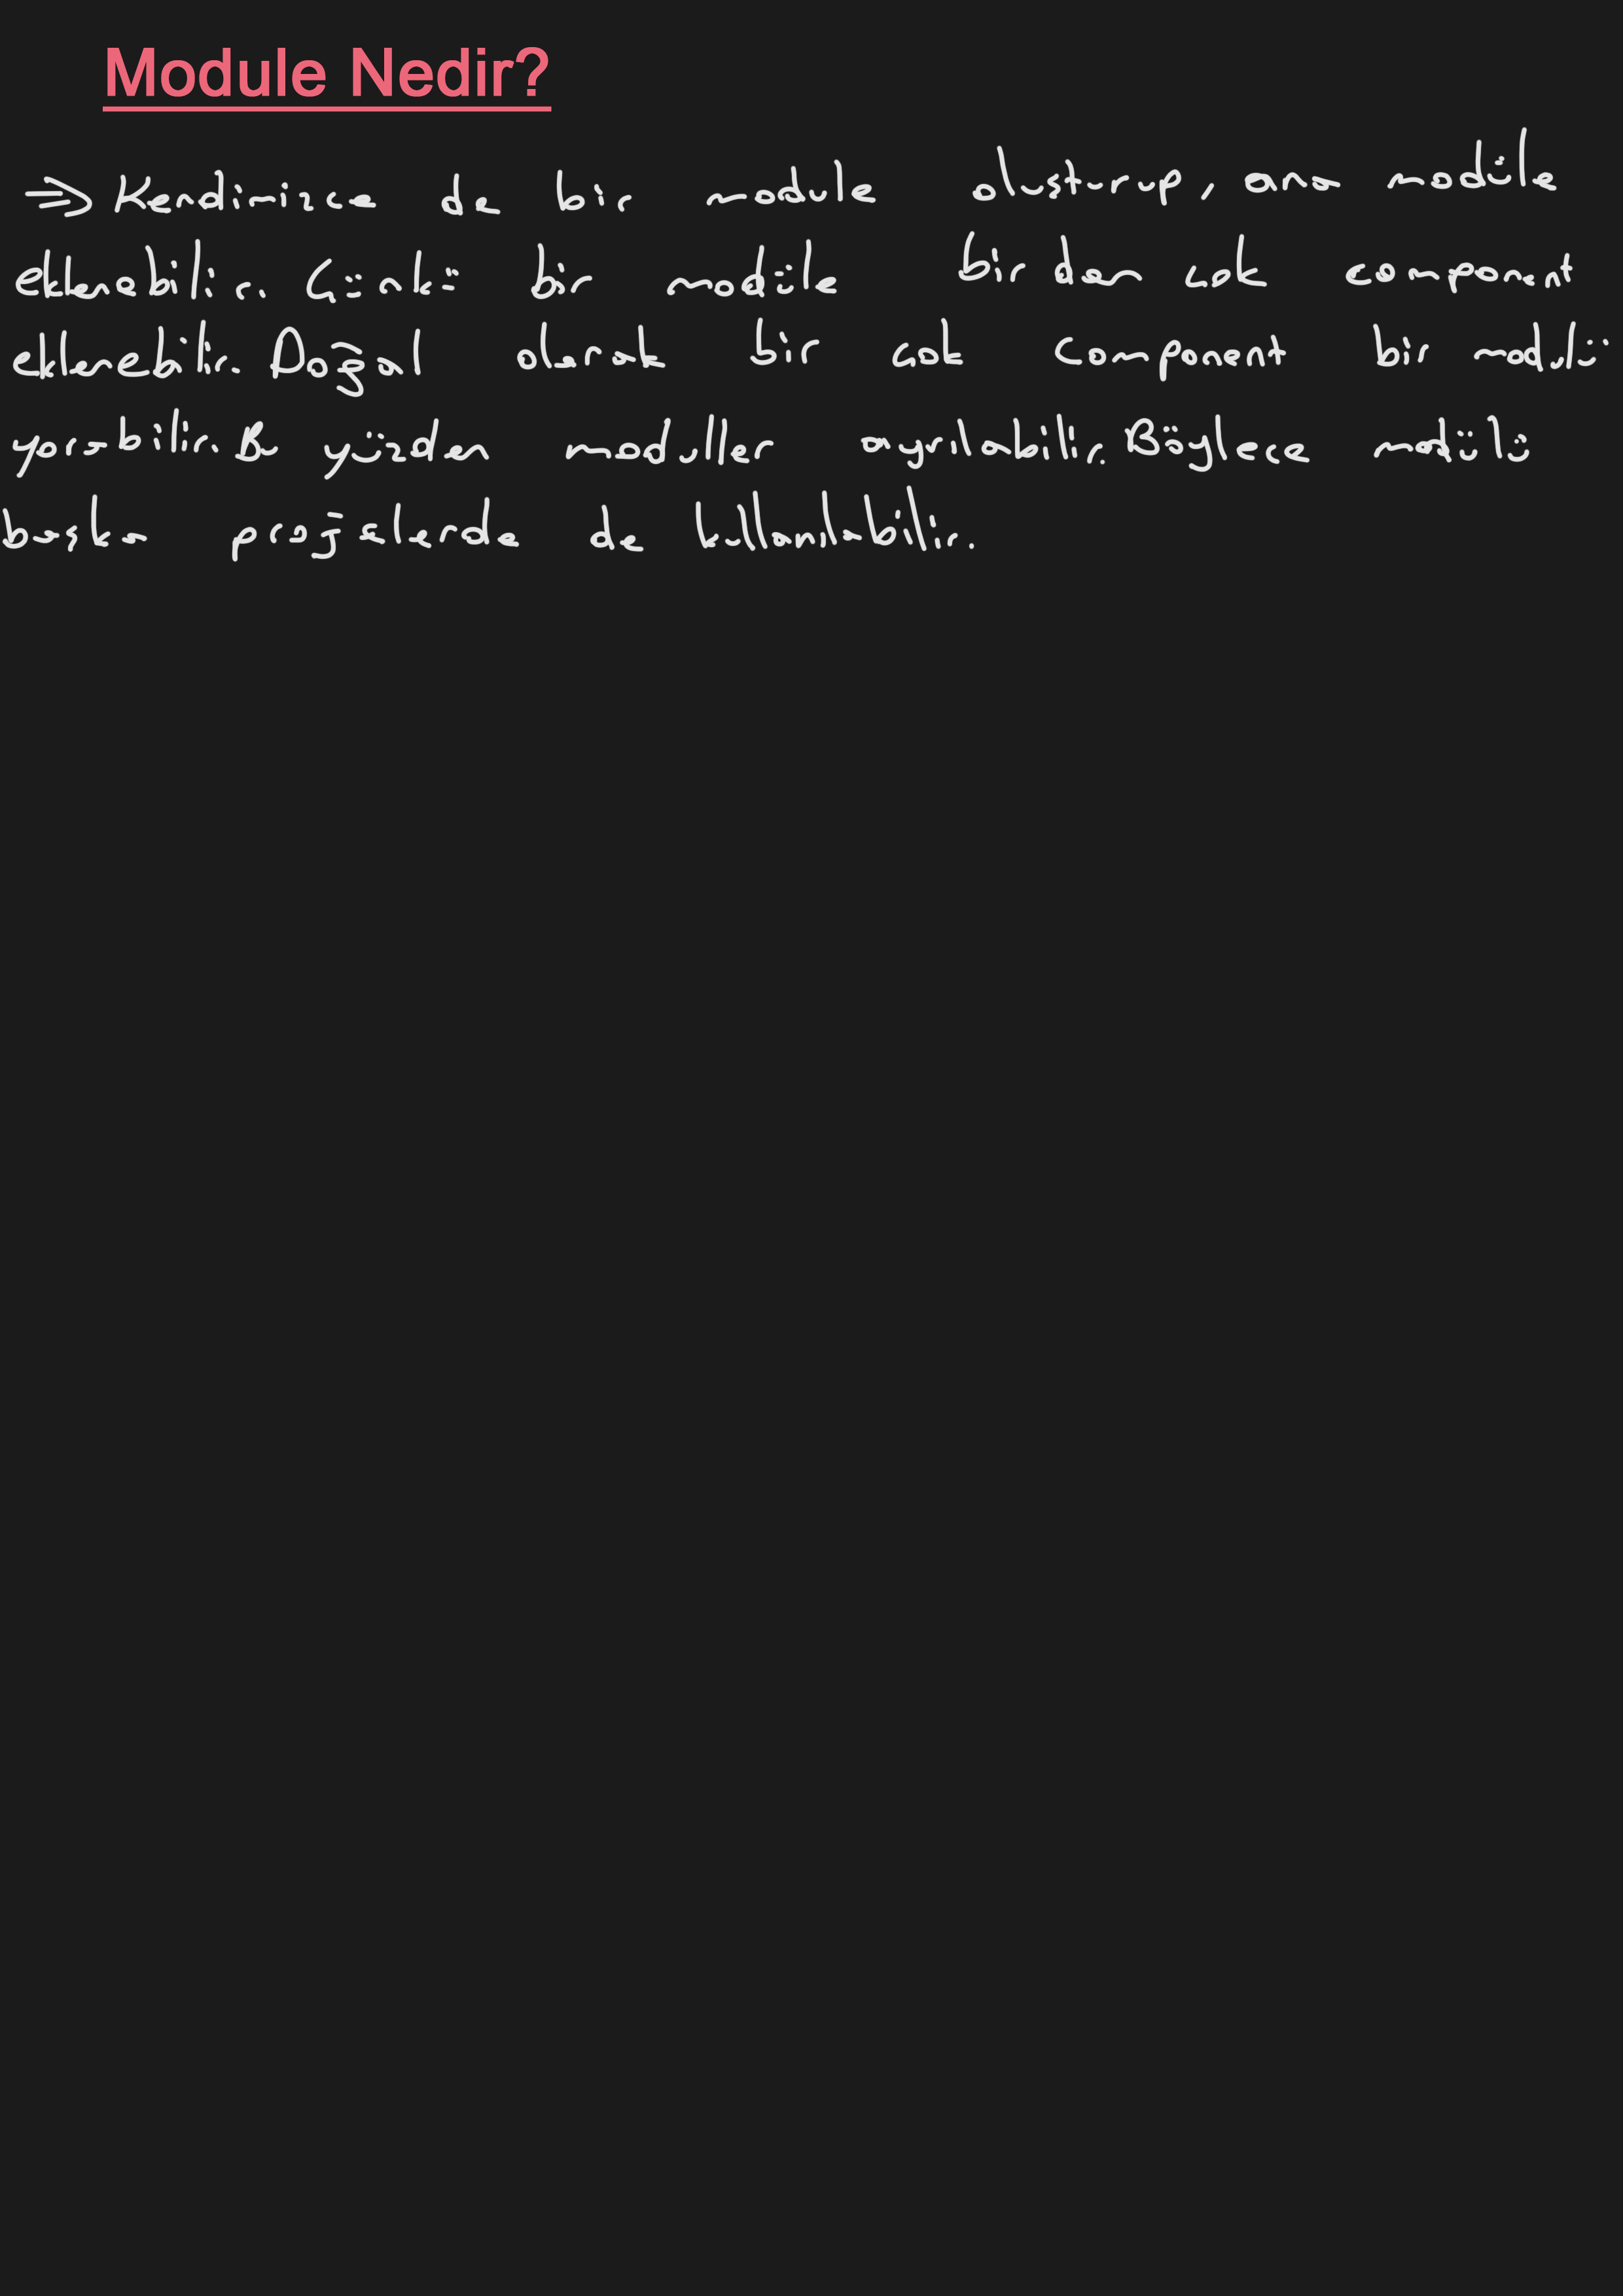 Module Nedir?
⇒ Kendimizce de bir module oluşturup, ana modüle
eklenebilir. Çünkü bir modüle birden çok component
eklenebilir. Doğal olarak bir çok component bir modülü
yorabilir. Bu yüzden moduller ayrılabilir. Böylece modülü
başka projelerde de kullanılabilir.